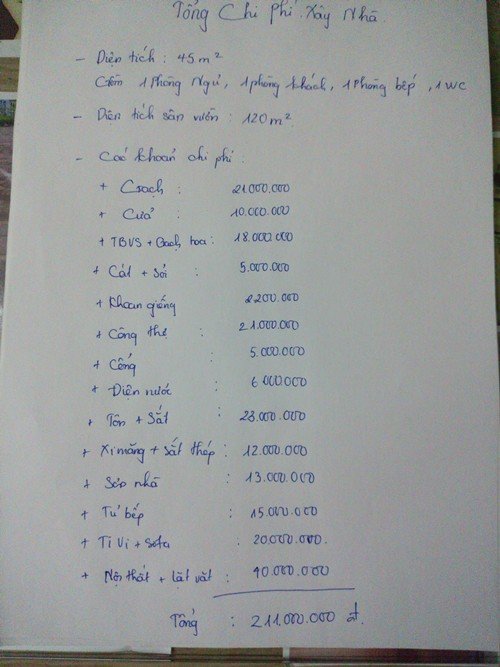 Tổng Chi phí Xây Nhà
- Diện tích : 45m²
Gồm 1 Phòng Ngủ, 1 phòng khách, 1 Phòng bếp, 1 WC
- Diện tích sân vườn : 120m²
- Các khoản chi phí :
+ Gạch : 21.000.000
+ Cửa : 10.000.000
+ TBVS + Gạch hoa : 18.000.000
+ Cát + Sỏi : 5.000.000
+ Khoan giếng 2200.000
+ Công thợ : 21.000.000
+ Cổng 5.000.000
+ Điện nước : 6000000
+ Tôn + Sắt : 23.000.000
+ Xi măng + sắt thép : 12.000.000
+ Sơn nhà : 13.000.000
+ Tủ bếp : 15.000.000
+ Ti Vi + Sofa : 20.000.000.
+ Nội thất + lặt vặt : 40.000.000
Tổng : 211.000.000 đ.